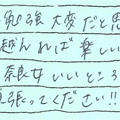 張大変だと思
越んれば楽しい
奈良女いいところ
張ってください!!